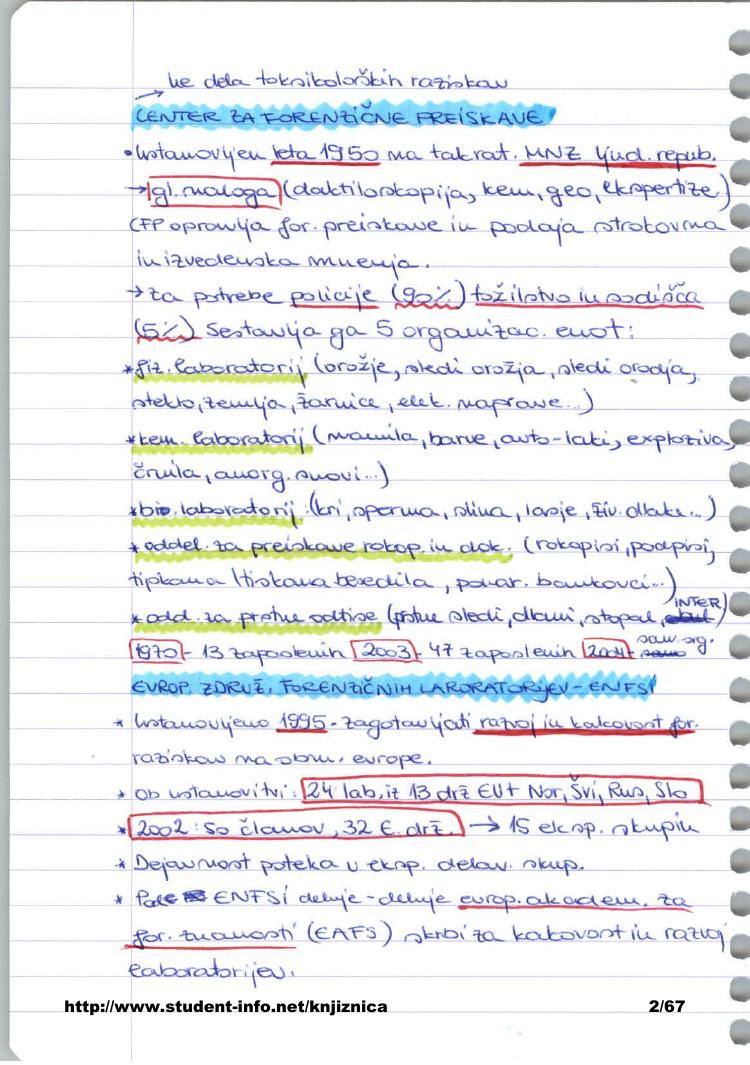 → ne dela toksikoloških raziskav
CENTER ZA FORENZIČNE PREISKAVE
• Ustanovljen leta 1950 na takrat. MNZ ljud. repub.
→ gl. naloga (daktiloskopija, kem, geo, ekspertize)
CFP opravlja for. preiskave in podaja strokovna
in izvedenska mnenja.
→ za potrebe policije (90%) tožilstvo in sodišča
(5%) Sestavlja ga 5 organizac. enot:
* fiz. laboratorij (orožje, sledi orožja, sledi orodja,
steklo, zemlja, žarnice, elek. naprave...)
* kem. laboratorij (mamila, barve, auto-laki, exploziva,
črnila, anorg. snovi...)
* bio. laboratorij (kri, sperma, slina, lasje, živ. dlake...)
* oddel. za preiskave rokop. in dok. (rokopisi, podpisi,
tipkana/tiskana besedila, ponar. bankovci...)
INTER)
* odd. za prstne odtise (prstne sledi, dlani, stopal,
1970 - 13 zaposlenih 2003 - 47 zaposlenih 2004 - sam. org.
EVROP. ZDRUŽ. FORENZIČNIH LABORATORIJEV - ENFSI
* Ustanovljeno 1995 - zagotavljati razvoj in kakovost for.
raziskav na obm. evrope.
* Ob ustanovitvi: 24 lab, iz 13 drž EU + Nor, Švi, Rus, Slo
* 2002: 50 članov, 32 E. drž. → 15 eksp. skupin
* Dejavnost poteka v eksp. delav. skup.
* Pole ENFSI deluje - deluje evrop. akadem. za
for. znanosti (EAFS) skrbi za kakovost in razvoj
laboratorijev.
http://www.student-info.net/knjiznica 2/67